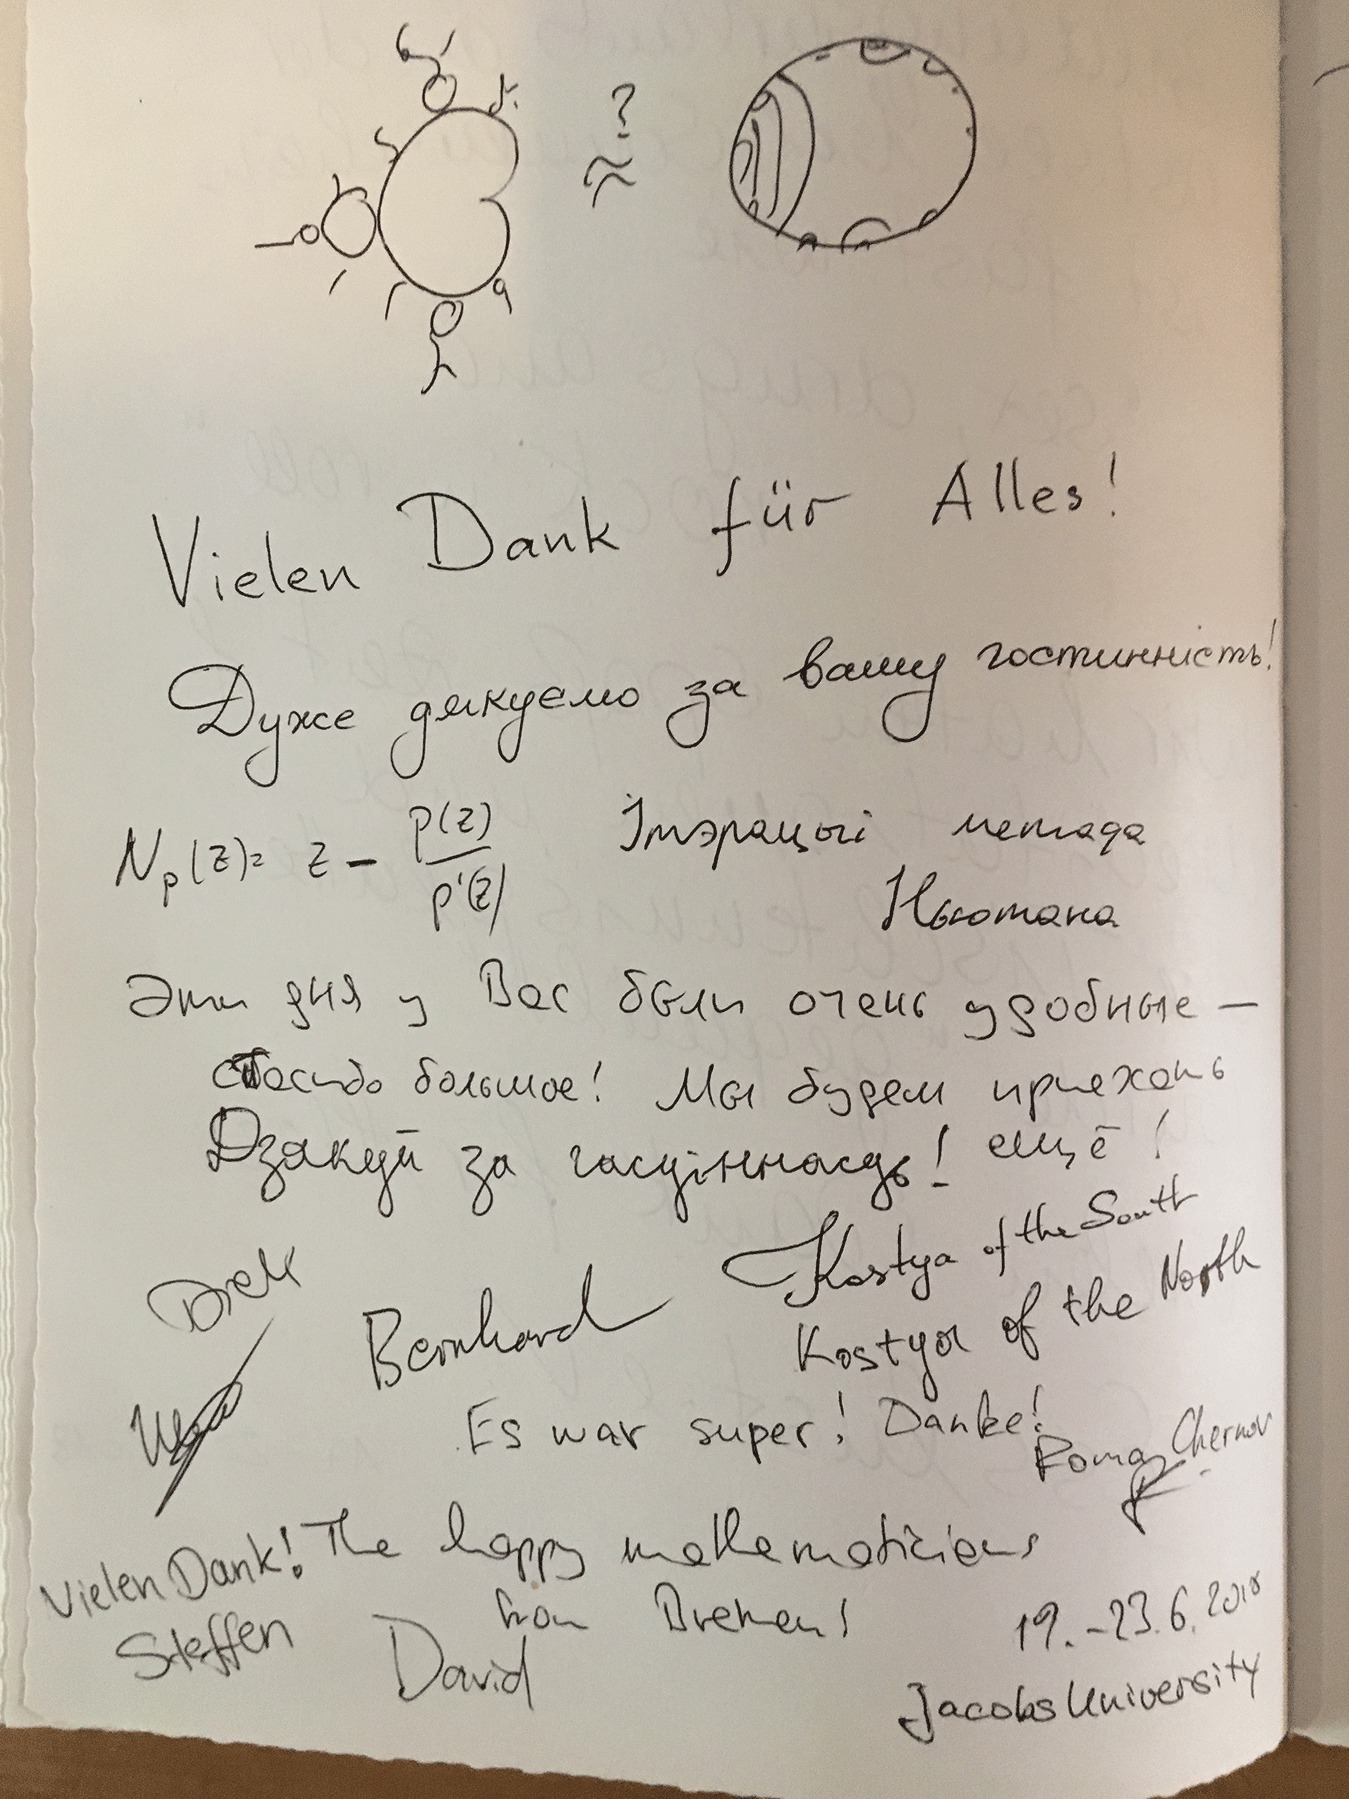 ?
≈
Vielen Dank für Alles!
Дуже дякуємо за вашу гостинність!
Np(z)= z - p(z)/p'(z) Ітэрацыі метада
Ньютана
Эти дня у Вас были очень удобные -
спасибо большое! Мы будем приехать
Дзякуй за гасціннасць! ещё!
Kostya of the South
Bernhard
Kostya of the North
Es war super! Danke!
Roma Chernov
Vielen Dank! The happy mathematicians
from Bremen!
Steffen
David
19.-23.6.2018
Jacobs University